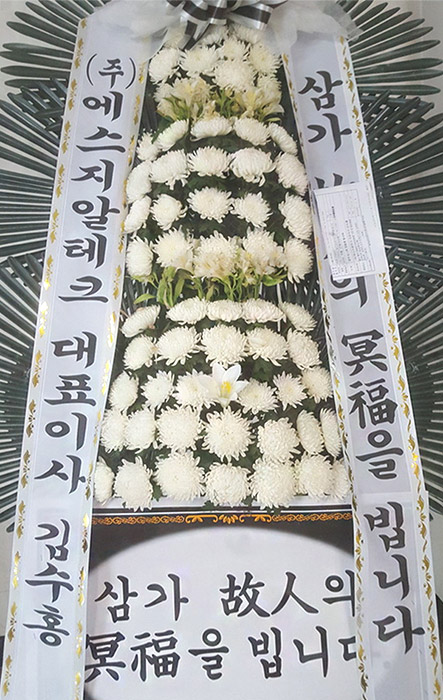 (주)에스지알테크 대표이사 김수홍
삼가 의 冥福을 빕니다
삼가 故人의
冥福을 빕니다